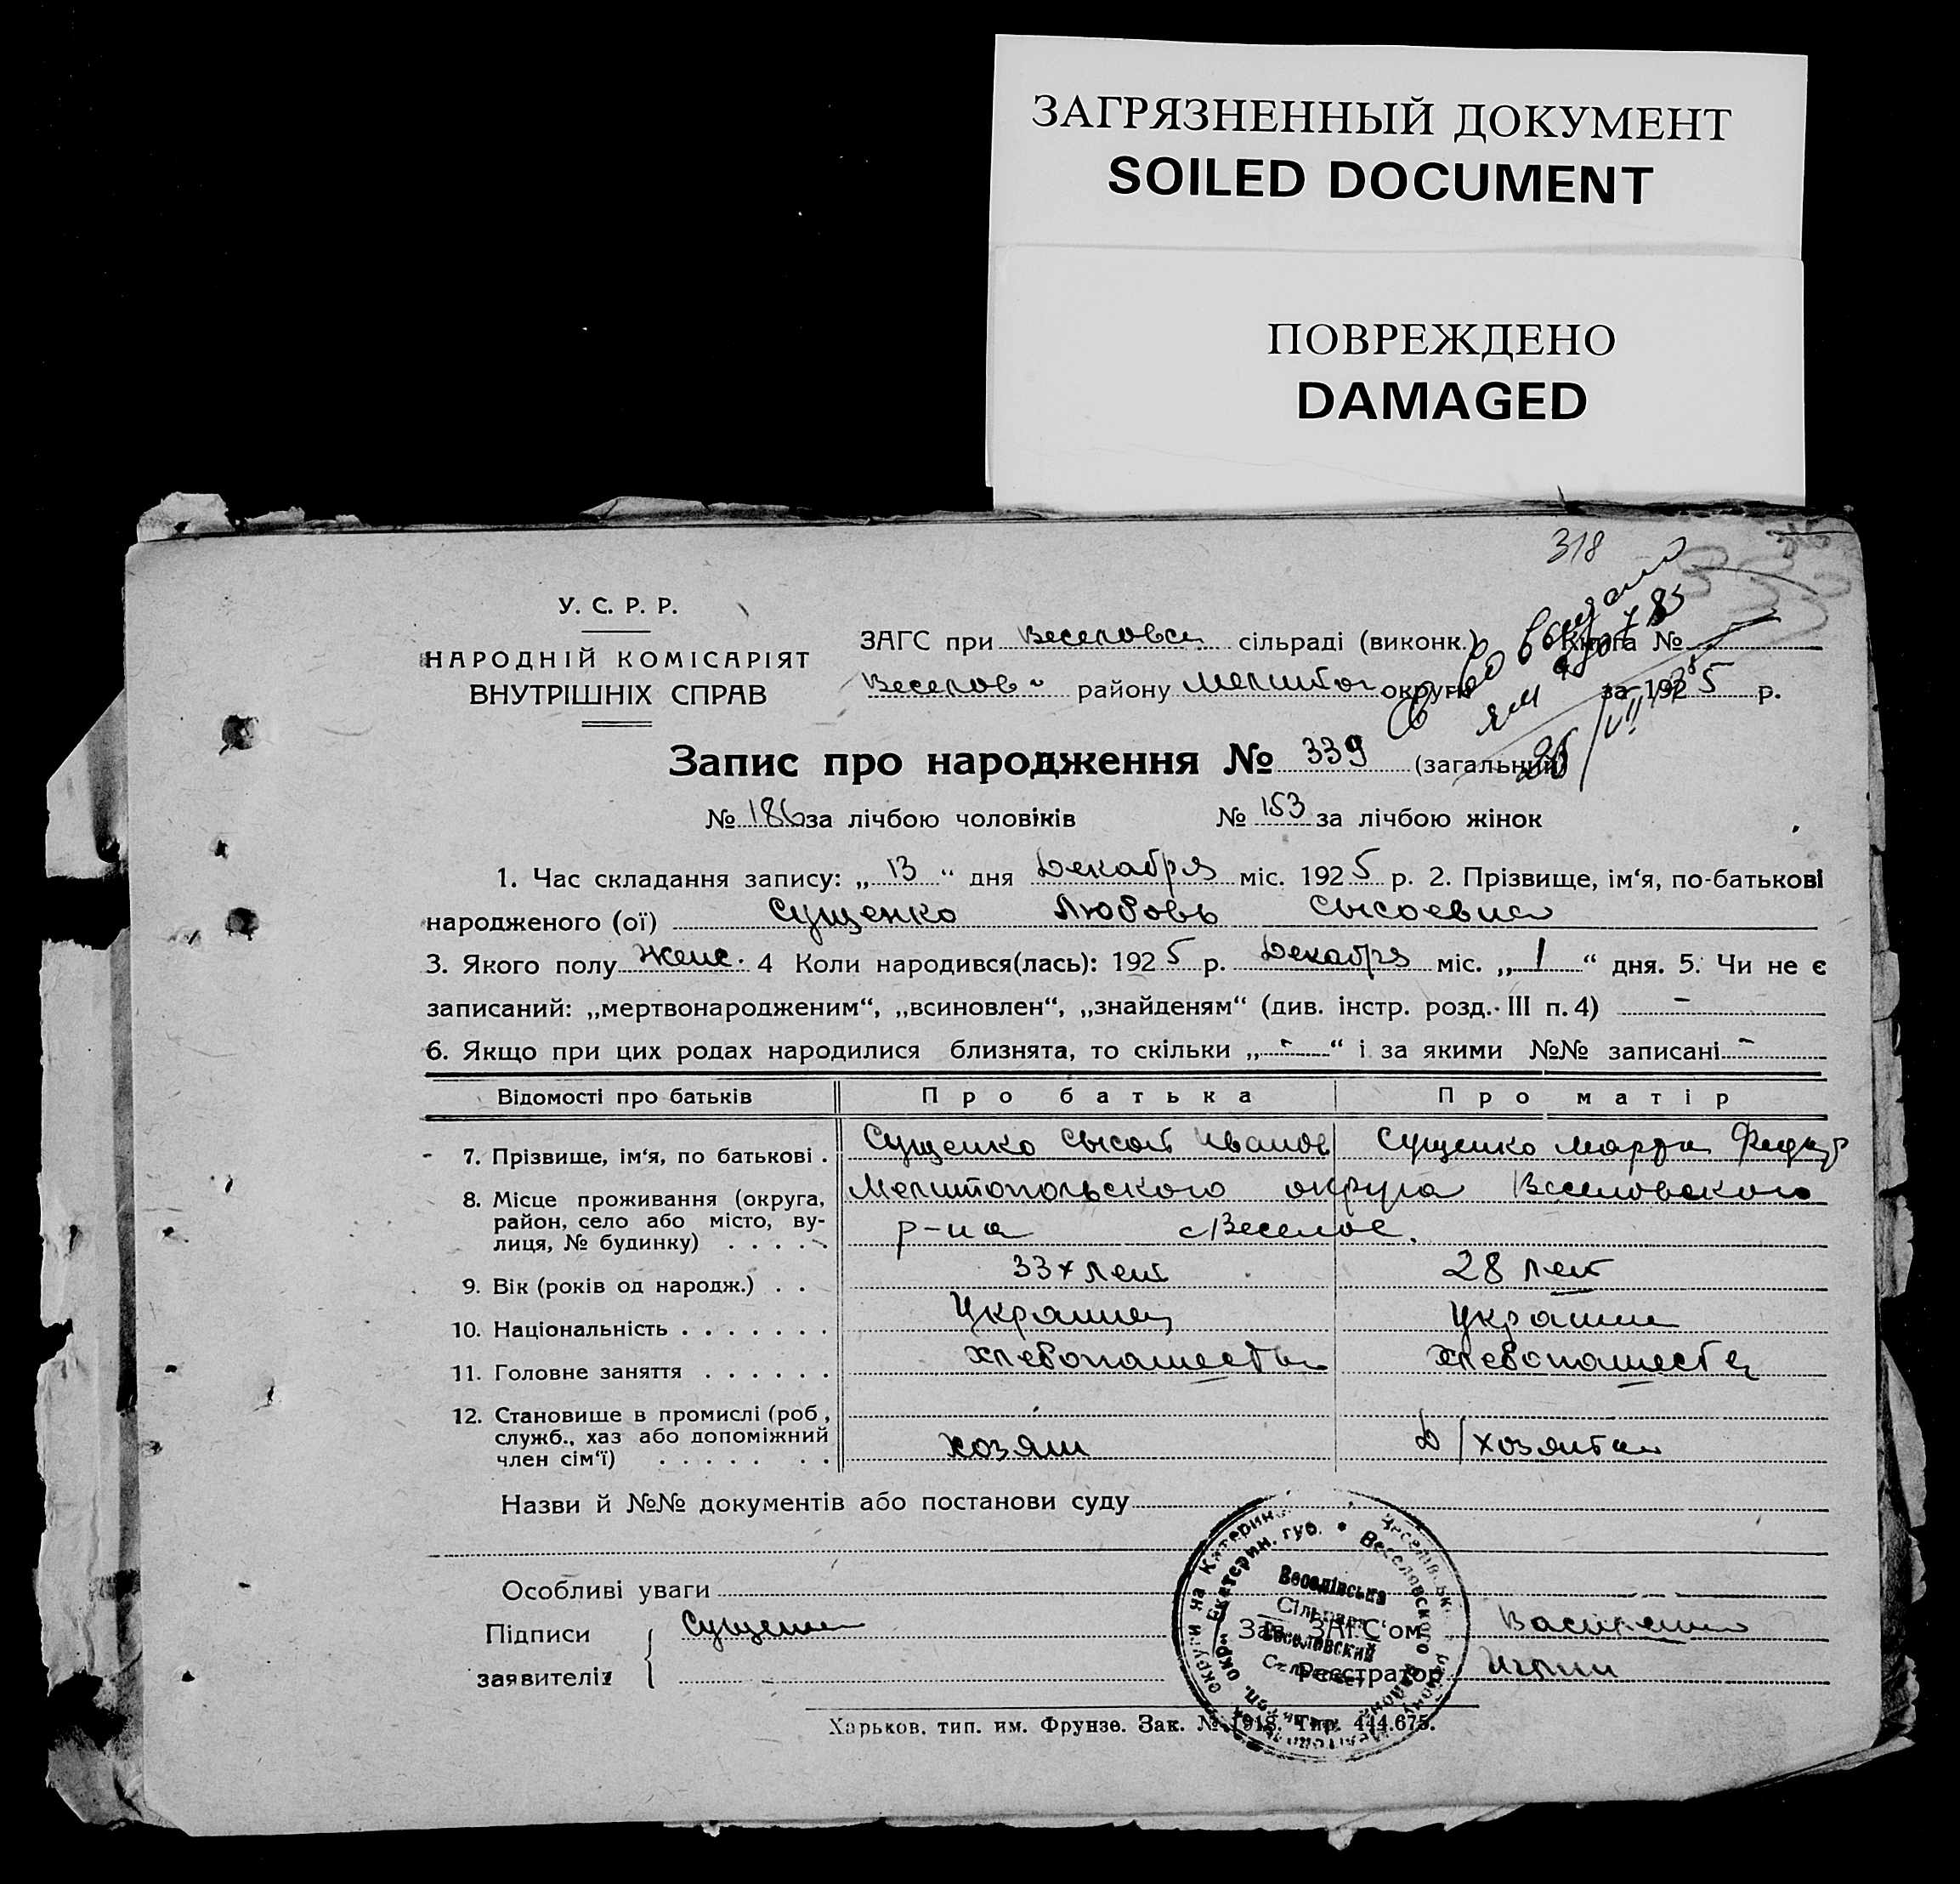 ЗАГРЯЗНЕННЫЙ ДОКУМЕНТ
SOILED DOCUMENT
ПОВРЕЖДЕНО
DAMAGED
318
У. С. Р. Р.
НАРОДНІЙ КОМІСАРІЯТ
ВНУТРІШНІХ СПРАВ
ЗАГС при Веселовск сільраді (виконк.) Книга №
Веселов района Мелитоп округи за 1925 р.
Запис про народження № 339 (загальний)
№ 186 за лічбою чоловіків № 153 за лічбою жінок
1. Час складання запису: „13“ дня Декабря міс. 1925 р. 2. Прізвище, ім‘я, по-батькові
народженого (ої) Сущенко Любовь Сысоевна
3. Якого полу Женс. 4 Коли народився(лась): 1925 р. Декабря міс. „1“ дня. 5. Чи не є
записаний: „мертвонародженим“, „всиновлен“, „знайденям“ (див. інстр. розд. III п. 4) -
6. Якщо при цих родах народилися близнята, то скільки „-“ і за якими №№ записані -
Відомості про батьків Про батька Про матір
7. Прізвище, ім‘я, по батькові . Сущенко Сысой Иванов Сущенко Марфа Федор
8. Місце проживання (округа, Мелитопольского округа Веселовского
район, село або місто, ву-
лиця, № будинку) . . . . . р-на с/Веселое.
9. Вік (років од народж.) . . 33х лет 28 лет
10. Національність . . . . . . . Украинец Украин
11. Головне заняття . . . . . . Хлебопашество Хлебопашество
12. Становище в промислі (роб,
служб., хаз або допоміжний хозяин Д/хозяйка
член сім‘ї) . . . . . . .
Назви й №№ документів або постанови суду
Особливі уваги
Підписи Сущенко Зав. ЗАГС‘ом
заявителів Реєстратор
Веселівська
Сільрада
Веселовский
Сельсовет
Харьков, тип. им. Фрунзе. Зак. № 1918. Тир. 444.675.